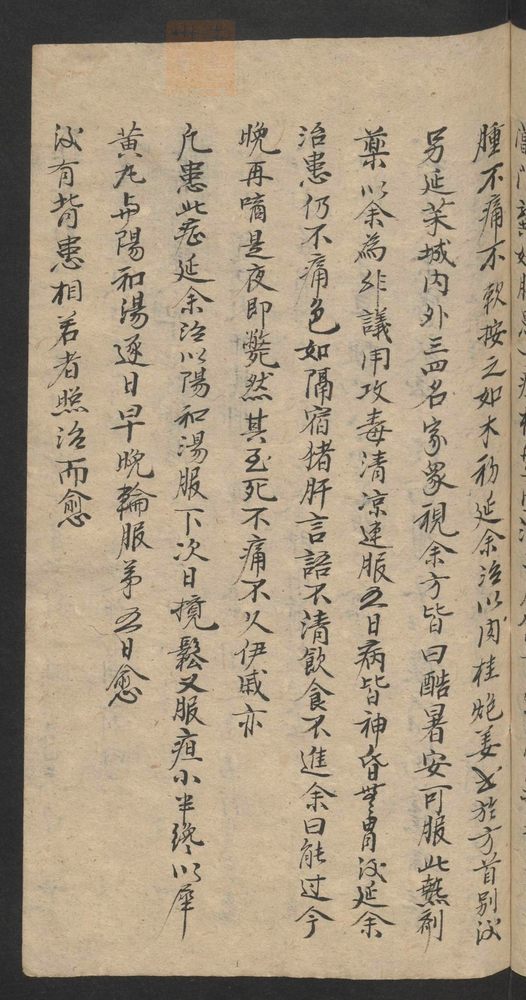 腫不痛不軟按之如木初延余治以肉桂炮姜書於方首別後
另延芙城内外三四名家衆視余方皆曰酷暑安可服此熱劑
藥以余為非議用攻毒清凉連服五日病皆神昏無胃後延余
治患仍不痛色如隔宿猪肝言語不清飲食不進余曰能过今
晚再啇是夜即斃然其至死不痛不久伊戚亦
凢患此症延余治以陽和湯服下次日覺鬆又服疽小半継以犀
黃丸与陽和湯逐日早晩輪服第五日愈
後有背患相若者照治而愈